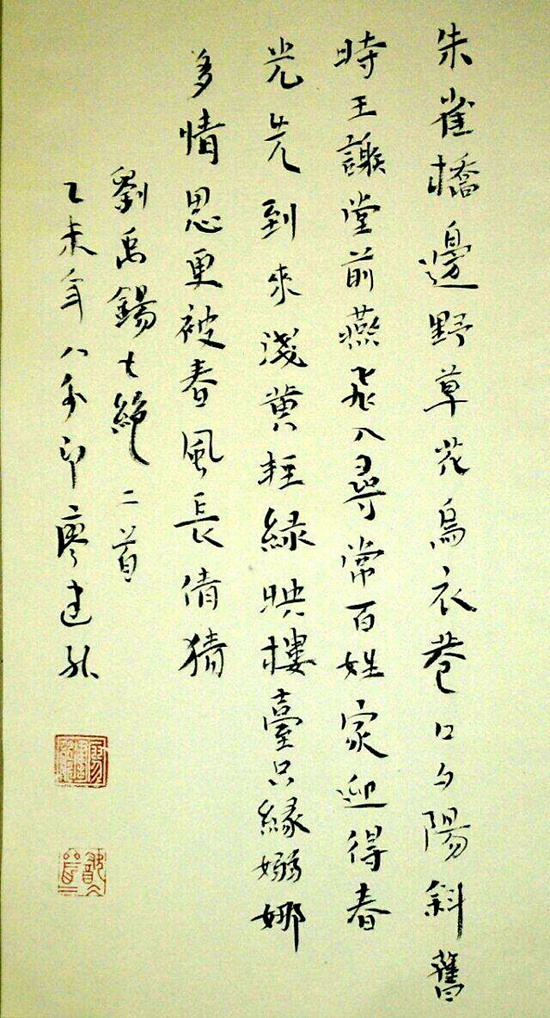 朱雀橋邊野草花烏衣巷口夕陽斜舊
時王謝堂前燕飛入尋常百姓家迎得春
光先到來淺黃輕綠映樓臺只緣嫋娜
多情思更被春風長倩猜
劉禹錫七絕二首
乙未年八印廖建